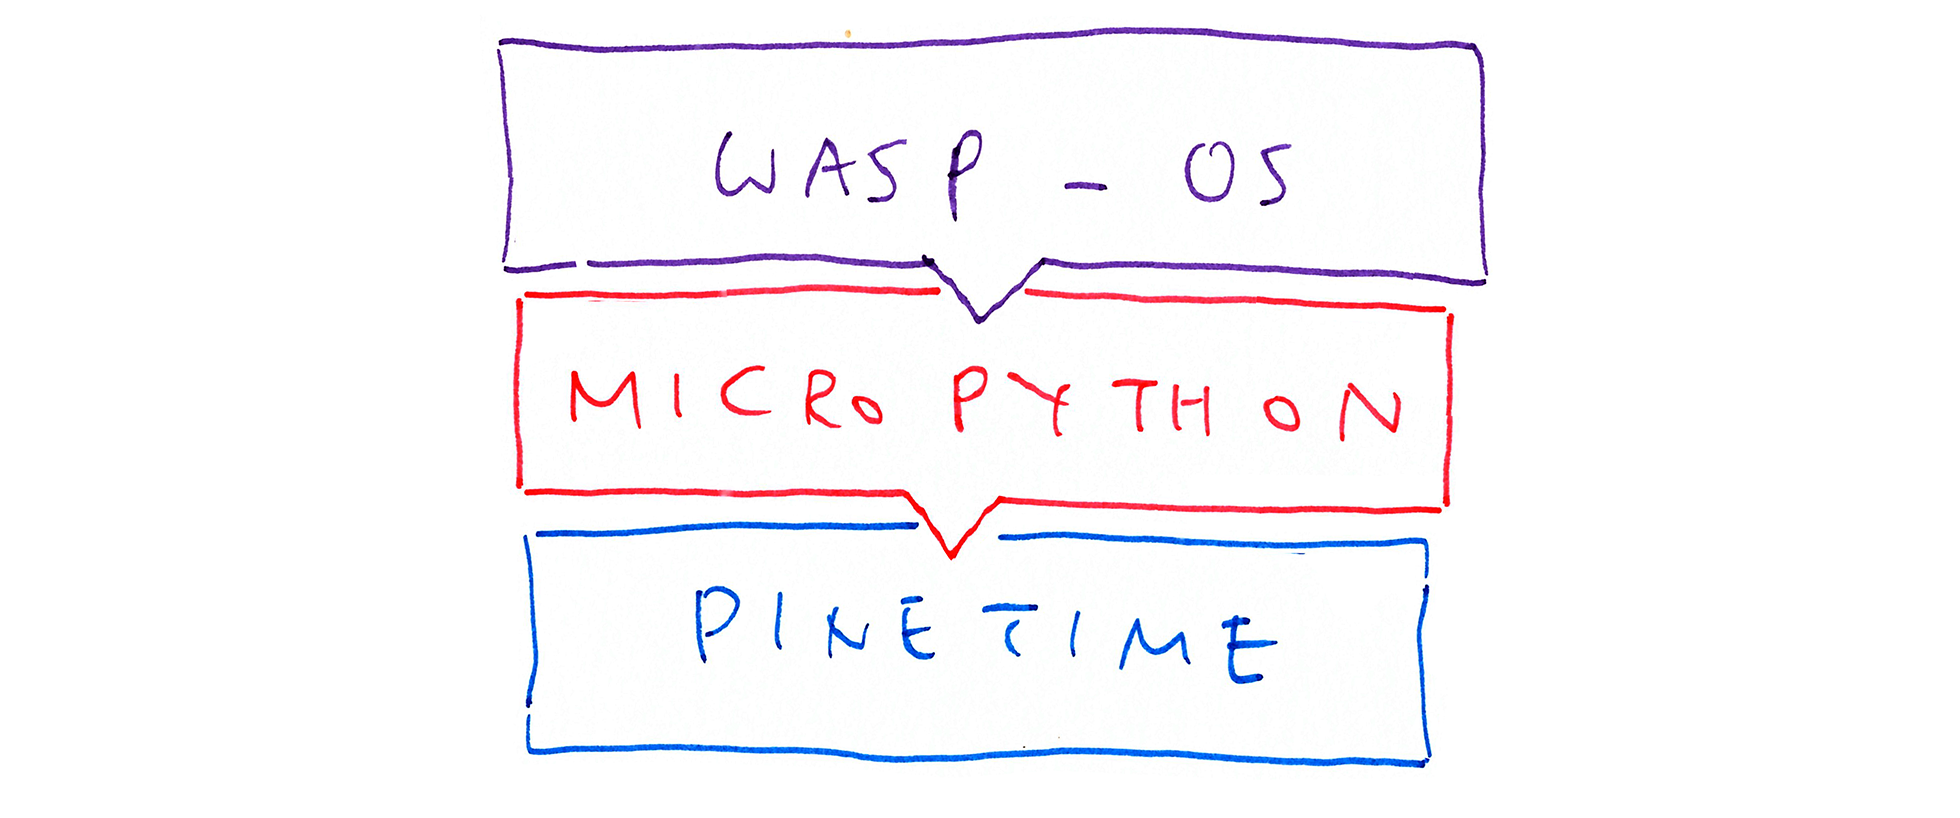 WASP - OS
MICROPYTHON
PINETIME